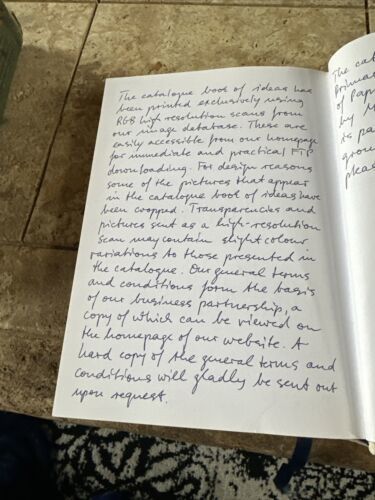 The catalogue book of ideas has
been printed exclusively using
RGB high resolution scans from
our image database. These are
easily accessible from our homepage
for immediate and practical FTP
downloading. For design reasons
some of the pictures that appear
in the catalogue book of ideas have
been cropped. Transparencies and
pictures sent as a high-resolution
scan may contain slight colour
variations to those presented in
the catalogue. Our general terms
and conditions form the basis
of our business partnership, a
copy of which can be viewed on
the homepage of our website. A
hard copy of the general terms and
conditions will gladly be sent out
upon request.
The cat
primar
of Pap
by M
its pa
grou
plea